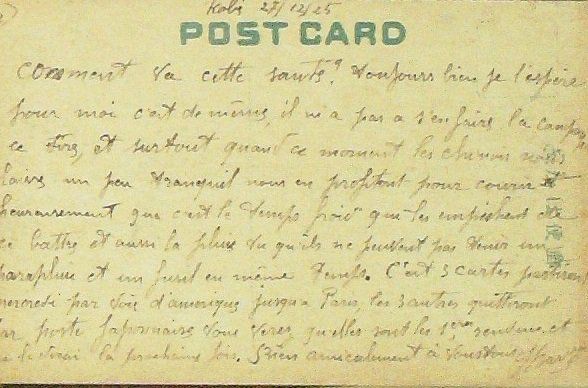 Kobé 27/12/25
POST CARD
Comment va cette santé? toujours bien je l'espère
pour moi c'est de même, il n'a pas a s'en faire la
ce et surtout quand ce moment les chinois nous
laisse un peu tranquil nous en profitont pour courir et
heureusement que c'est le temps froid qui les empêchent de
ce battre et aussi la pluie vu qu'ils ne peuvent pas tenir un
parapluie et un fusil en même temps. C'est 3 cartes partiron
mercredi par voie d'amerique jusqu'a Paris, les 3 autres quitteront
par poste Japonaise vous verez quelles sont les 1eres rendues et
la prochaine fois. Bien amicalement à vous tous